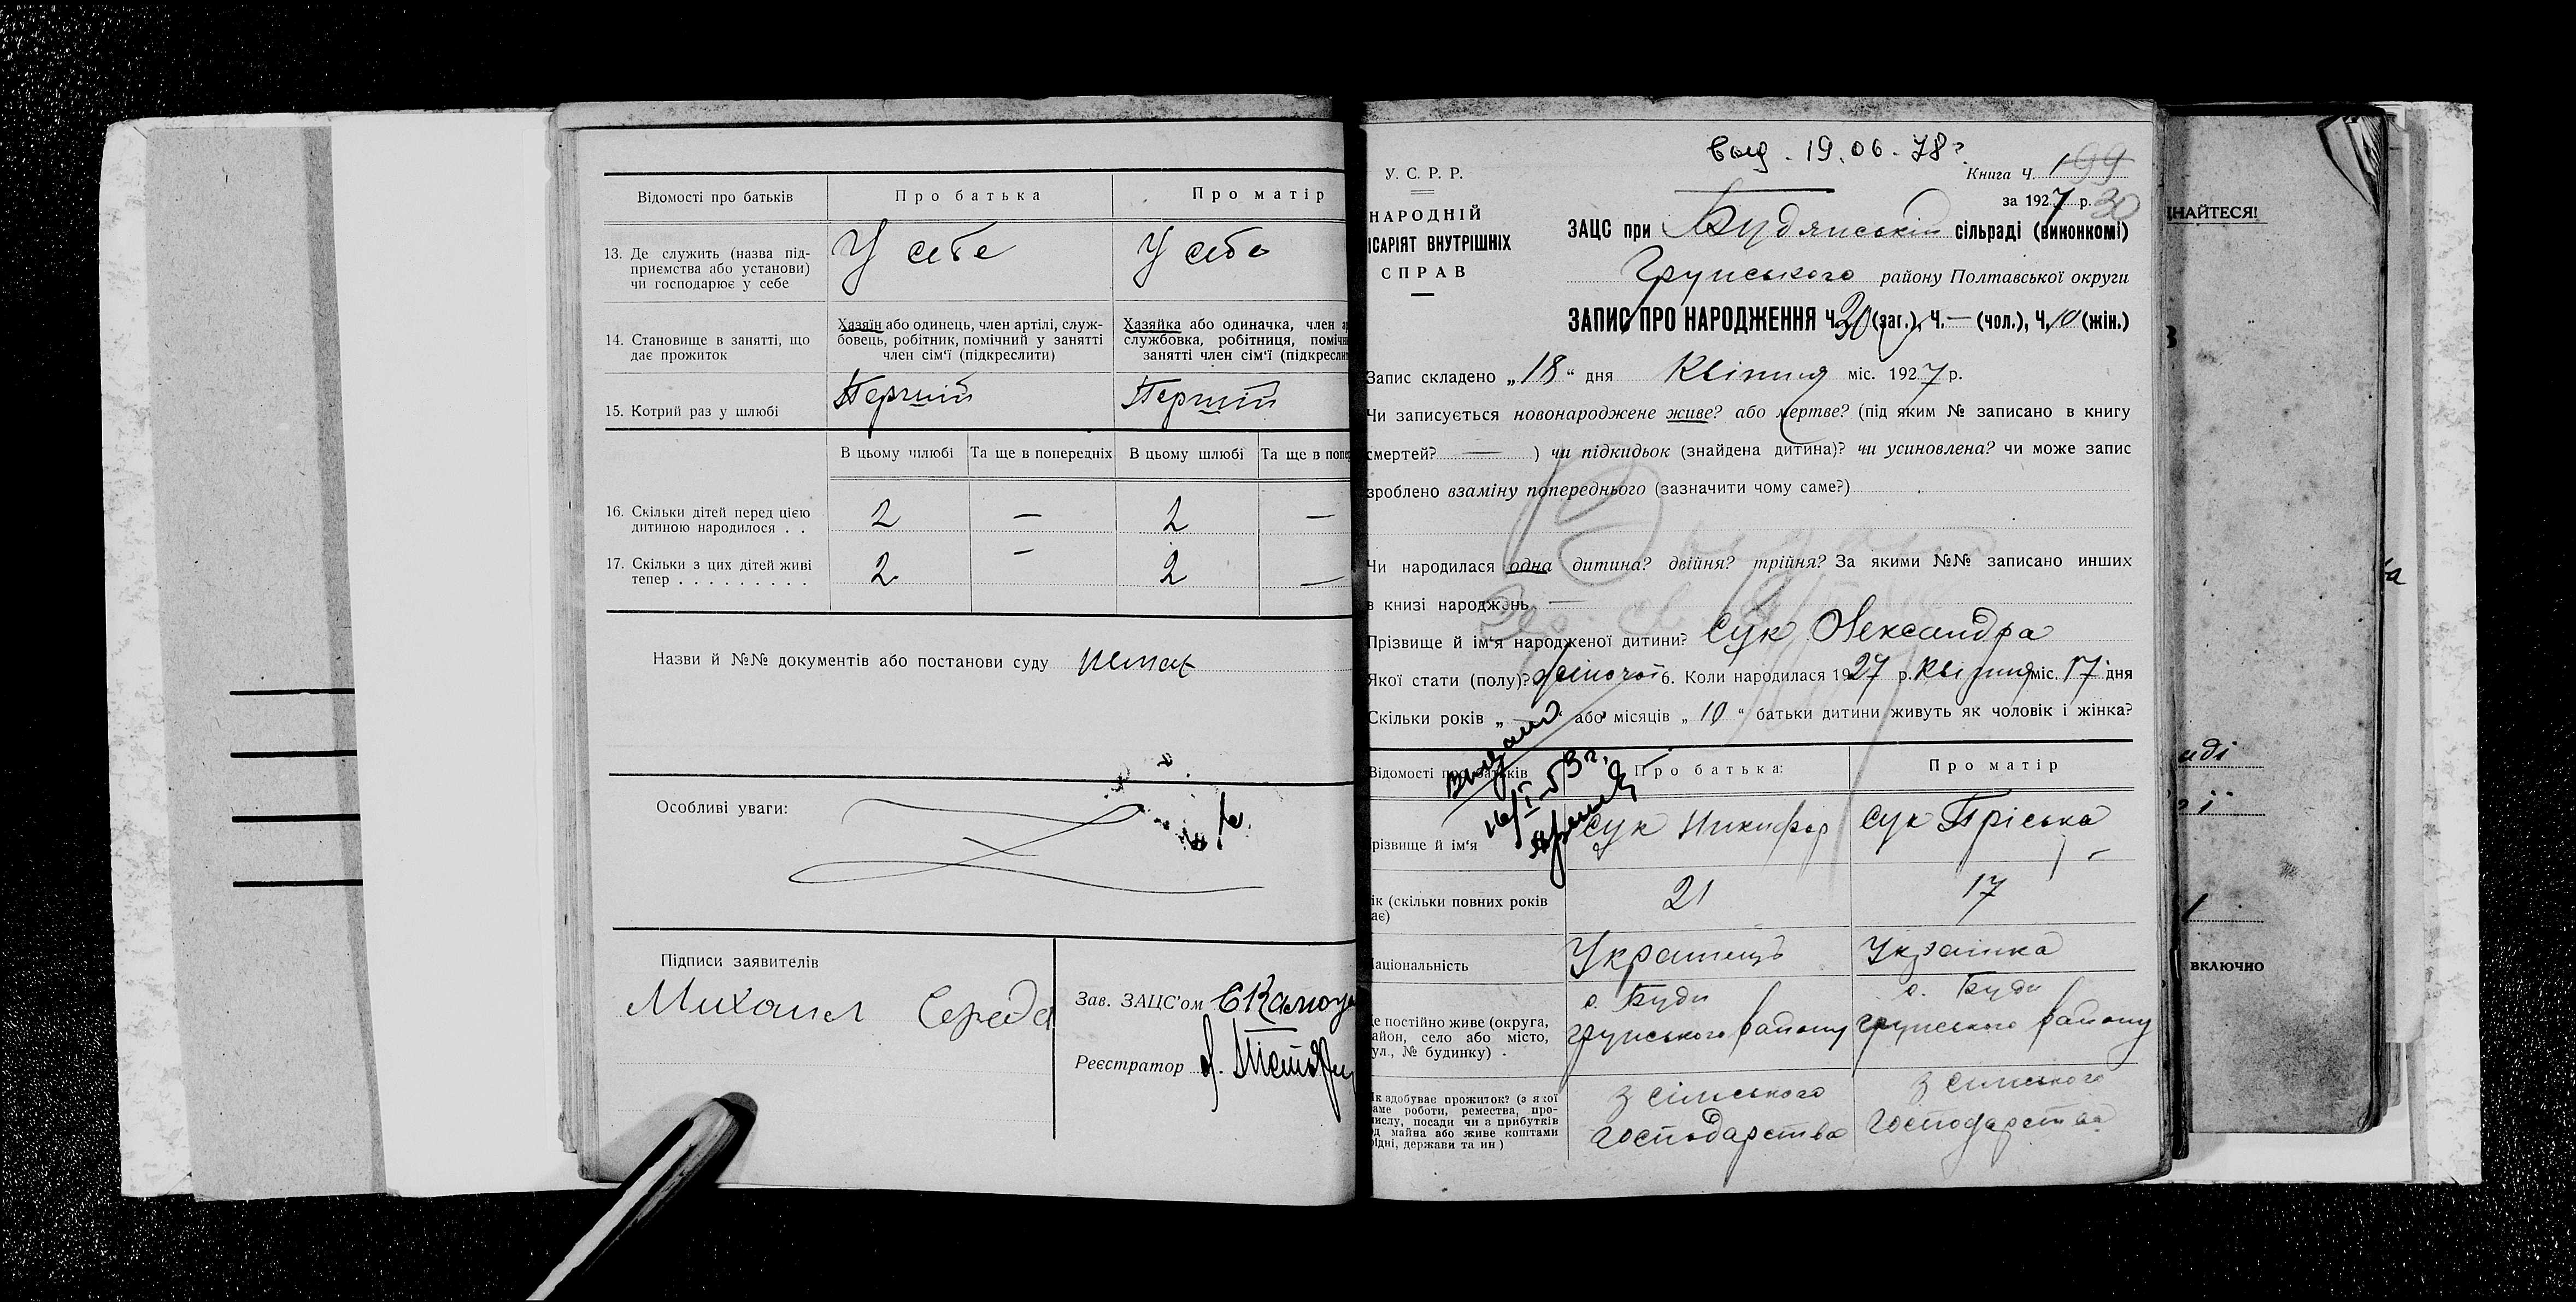 Відомості про батьків
Про батька
Про матір
13. Де служить (назва під-
приємства або установи)
чи господарює у себе
У себе
У себе
14. Становище в занятті, що
дає прожиток
Хазяїн або одинець, член артілі, служ-
бовець, робітник, помічний у занятті
член сім'ї (підкреслити)
Хазяйка або одиначка, член
службовка, робітниця,
занятті член сім'ї
15. Котрий раз у шлюбі
Перший
Перший
В цьому шлюбі
Та ще в попередніх
В цьому шлюбі
Та ще в
16. Скільки дітей перед цією
дитиною народилося . .
2
—
2
—
17. Скільки з цих дітей живі
тепер . . . . . . . . .
2
—
2
—
Назви й №№ документів або постанови суду немає
Особливі уваги:
Підписи заявителів
Михаил Середа
Зав. ЗАЦС'ом
Реєстратор
Выд. 19.06.78 г.
У. С. Р. Р.
НАРОДНІЙ
ІСАРІЯТ ВНУТРІШНІХ
СПРАВ
Книга Ч. 1 99
за 1927 р. 30
ЗАЦС при Будянській сільраді (виконкомі)
Грунського району Полтавської округи
ЗАПИС ПРО НАРОДЖЕННЯ Ч. 30 (заг.), Ч. — (чол.), Ч. 10 (жін.)
Запис складено „18“ дня Квітня міс. 1927 р.
Чи записується новонароджене живе? або мертве? (під яким № записано в книгу
смертей? — ) чи підкидьок (знайдена дитина)? чи усиновлена? чи може запис
зроблено взаміну попереднього (зазначити чому саме?)
Чи народилася одна дитина? двійня? трійня? За якими №№ записано инших
в книзі народжень —
Прізвище й ім'я народженої дитини? Сук Олександра
Якої стати (полу)? жіночої 6. Коли народилася 1927 р. квітня міс. 17 дня
Скільки років „—“ або місяців „10“ батьки дитини живуть як чоловік і жінка?
Відомості про батьків
Про батька:
Про матір
різвище й ім'я
Сук Никифор
Сук Пріська
ік (скільки повних років
ає)
21
17
аціональність
Українець
Українка
е постійно живе (округа,
айон, село або місто,
ул., № будинку) .
с. Буди
грунського району
с. Буди
грунського району
к здобуває прожиток? (з якої
аме роботи, ремества, про-
ислу, посади чи з прибутків
д майна або живе коштами
ідні, держави та ин)
з сільського
господарства
з сільського
господарства
НАЙТЕСЯ!
ВКЛЮЧНО